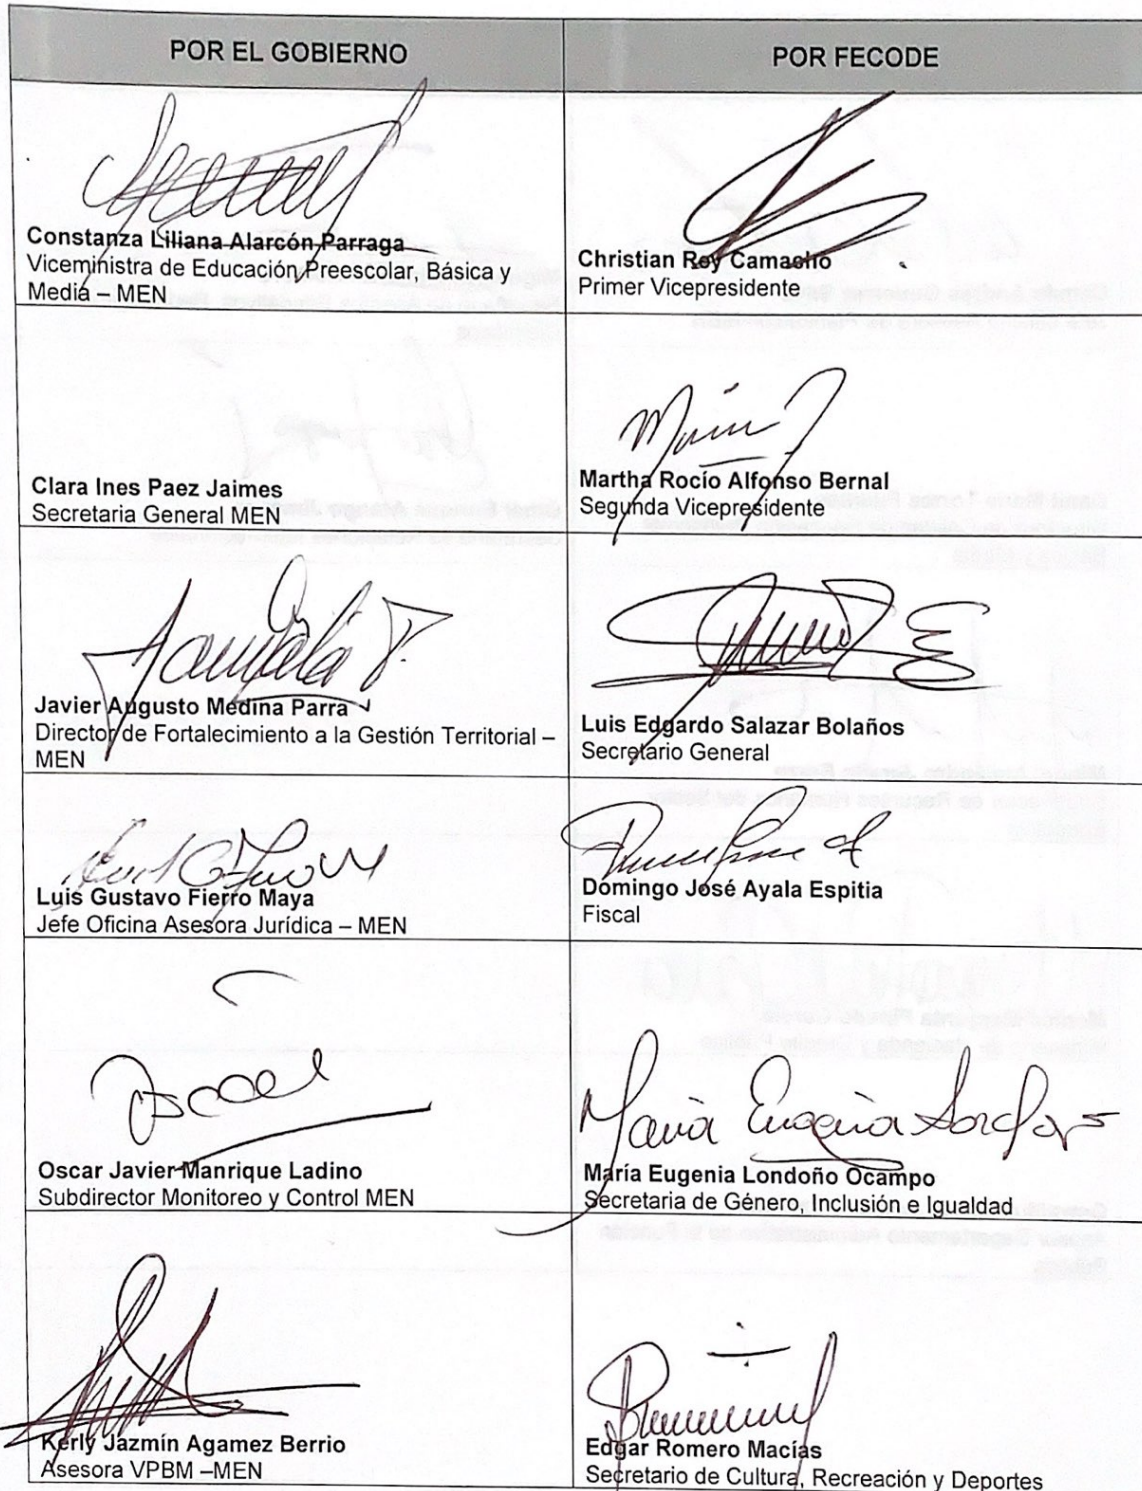 POR EL GOBIERNO
POR FECODE
Constanza Liliana Alarcón Parraga
Viceministra de Educación Preescolar, Básica y
Media – MEN
Christian Rey Camacho
Primer Vicepresidente
Clara Ines Paez Jaimes
Secretaria General MEN
Martha Rocío Alfonso Bernal
Segunda Vicepresidente
Javier Augusto Medina Parra
Director de Fortalecimiento a la Gestión Territorial –
MEN
Luis Edgardo Salazar Bolaños
Secretario General
Luis Gustavo Fierro Maya
Jefe Oficina Asesora Jurídica – MEN
Domingo José Ayala Espitia
Fiscal
Oscar Javier Manrique Ladino
Subdirector Monitoreo y Control MEN
María Eugenia Londoño Ocampo
Secretaria de Género, Inclusión e Igualdad
Kerly Jazmín Agamez Berrio
Asesora VPBM –MEN
Edgar Romero Macías
Secretario de Cultura, Recreación y Deportes